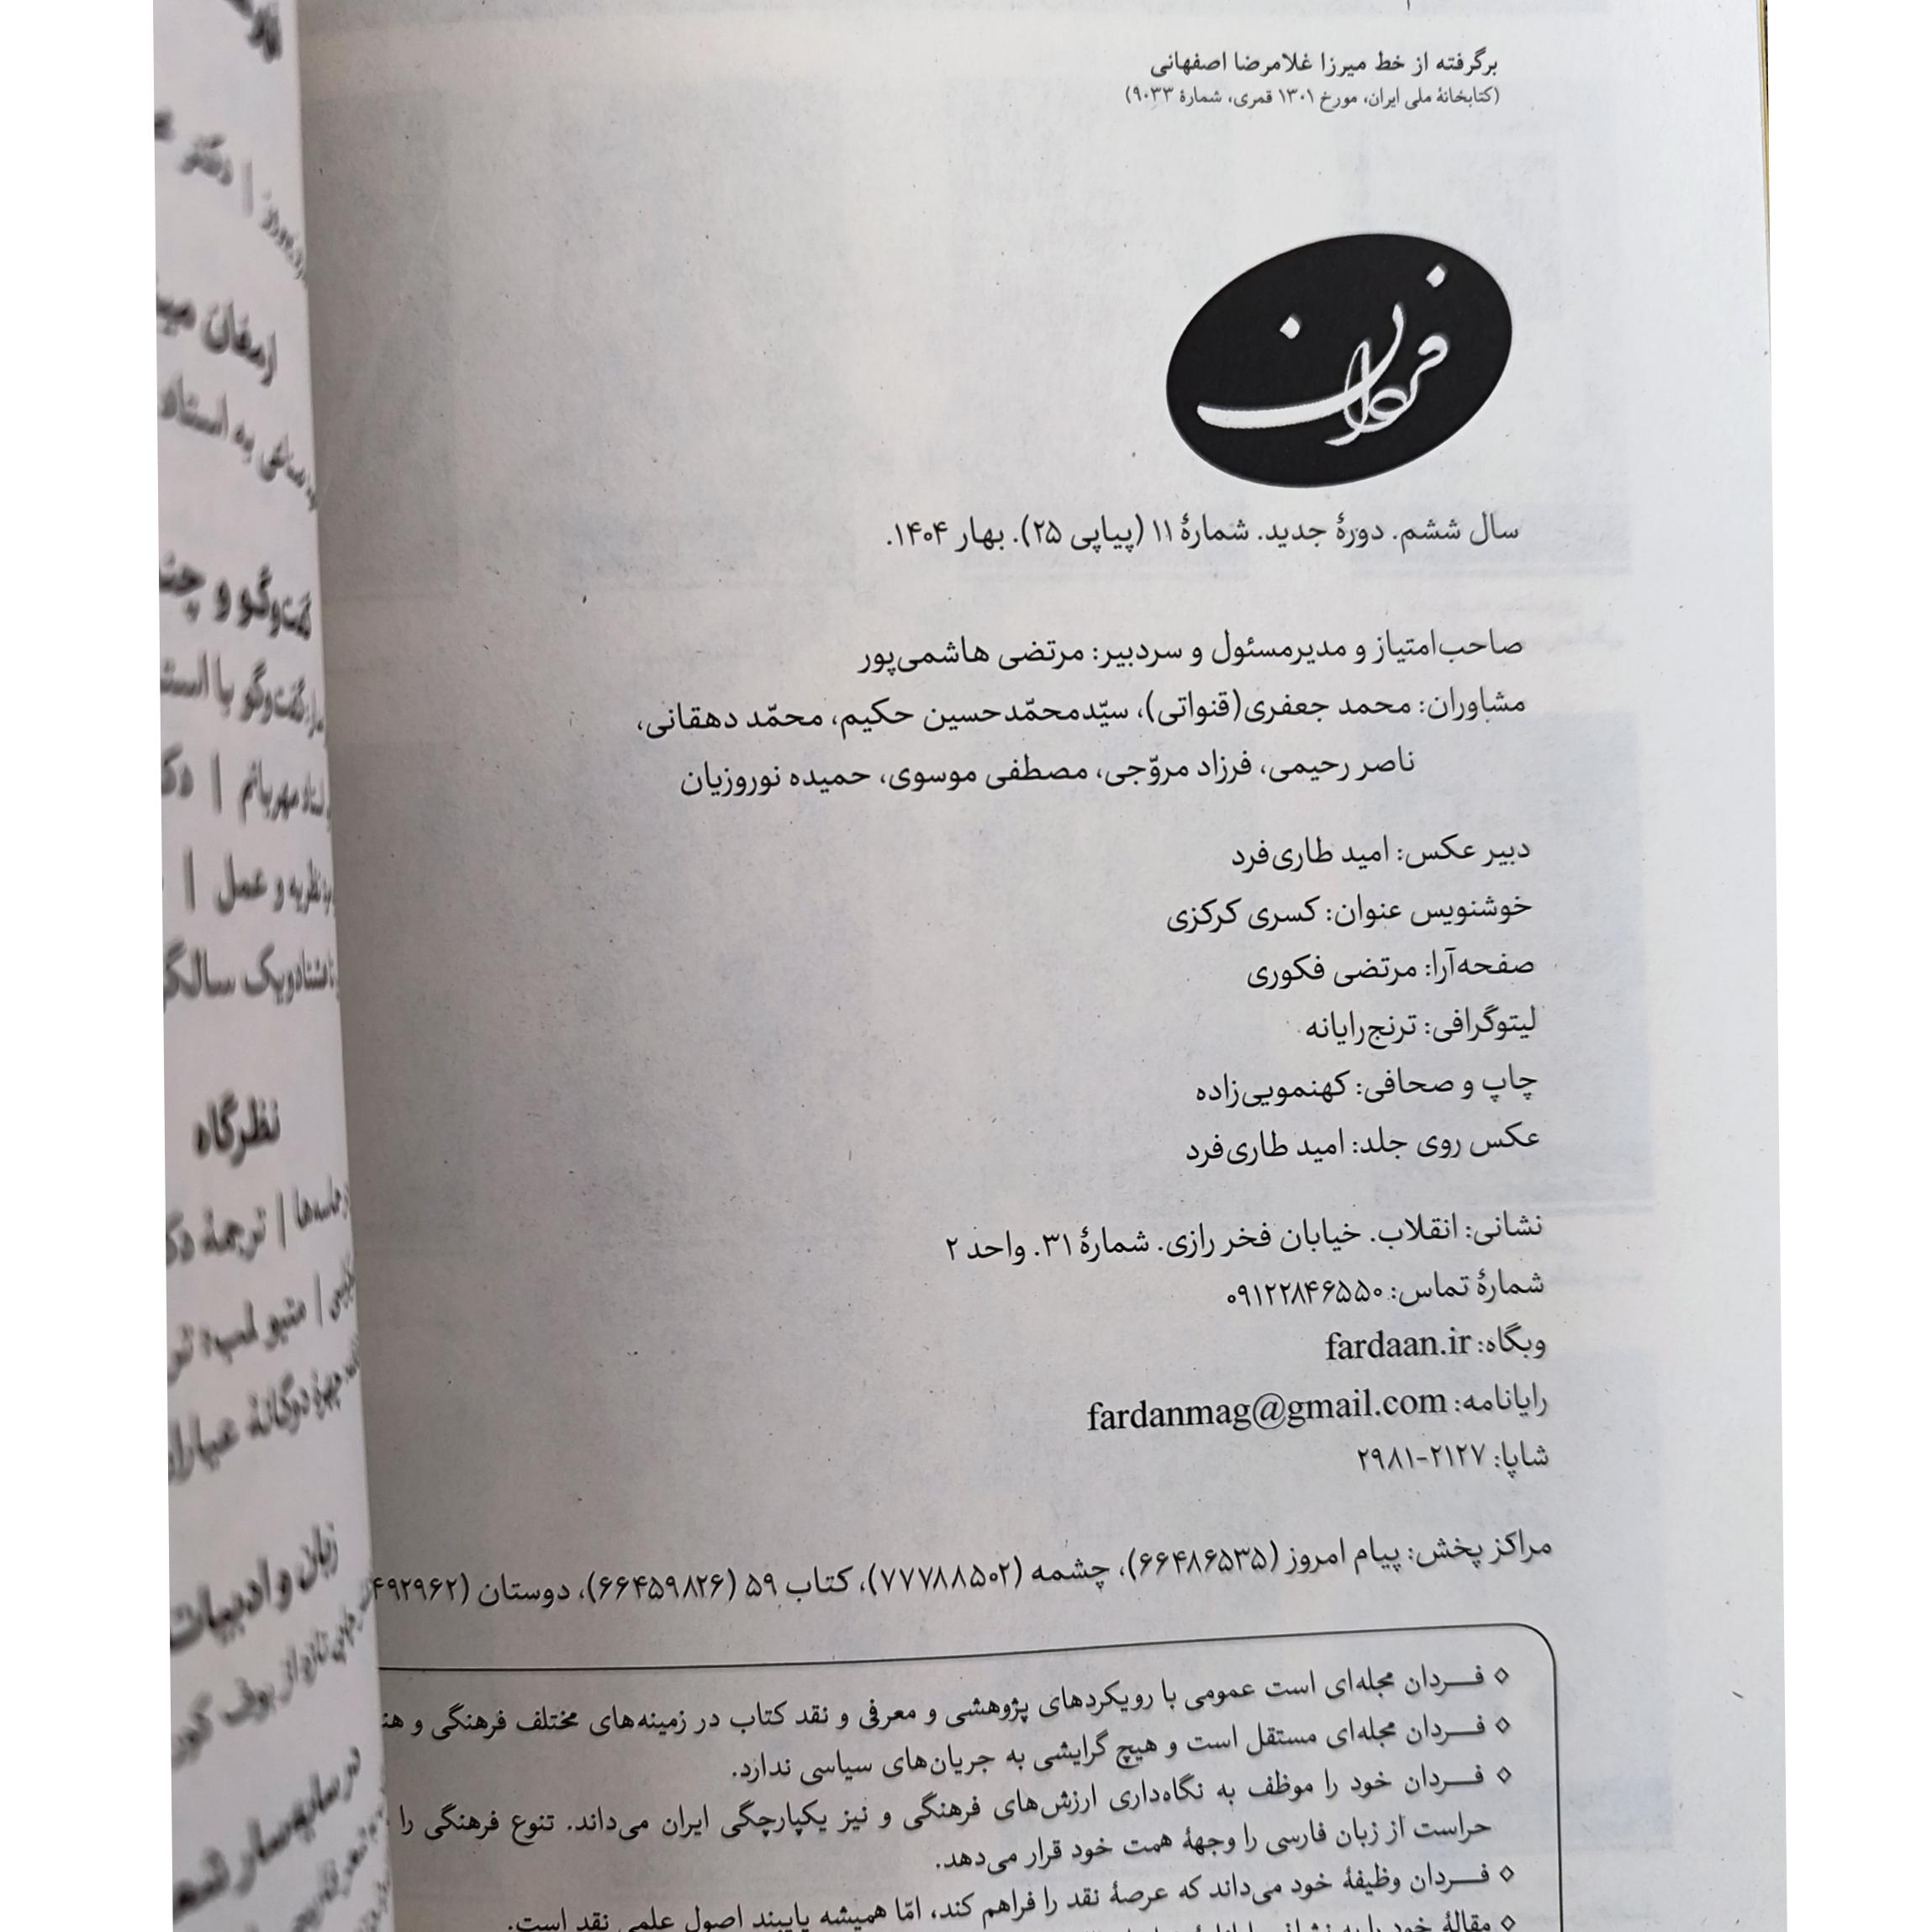 برگرفته از خط میرزا غلامرضا اصفهانی
(کتابخانهٔ ملی ایران، مورخ ۱۳۰۱ قمری، شمارهٔ ۹۰۳۳)
فردان
سال ششم. دورهٔ جدید. شمارهٔ ۱۱ (پیاپی ۲۵). بهار ۱۴۰۴.
صاحب‌امتیاز و مدیرمسئول و سردبیر: مرتضی هاشمی‌پور
مشاوران: محمد جعفری(قنواتی)، سیّدمحمّدحسین حکیم، محمّد دهقانی،
ناصر رحیمی، فرزاد مروّجی، مصطفی موسوی، حمیده نوروزیان
دبیر عکس: امید طاری‌فرد
خوشنویس عنوان: کسری کرکزی
صفحه‌آرا: مرتضی فکوری
لیتوگرافی: ترنج‌رایانه
چاپ و صحافی: کهنمویی‌زاده
عکس روی جلد: امید طاری‌فرد
نشانی: انقلاب. خیابان فخر رازی. شمارهٔ ۳۱. واحد ۲
شمارهٔ تماس: ۰۹۱۲۲۸۴۶۵۵۰
وبگاه: fardaan.ir
رایانامه: fardanmag@gmail.com
شاپا: ۲۱۲۷-۲۹۸۱
مراکز پخش: پیام امروز (۶۶۴۸۶۵۳۵)، چشمه (۷۷۷۸۸۵۰۲)، کتاب ۵۹ (۶۶۴۵۹۸۲۶)، دوستان (۴۹۲۹۶۲
◊ فـــردان مجله‌ای است عمومی با رویکردهای پژوهشی و معرفی و نقد کتاب در زمینه‌های مختلف فرهنگی و
◊ فـــردان مجله‌ای مستقل است و هیچ گرایشی به جریان‌های سیاسی ندارد.
◊ فـــردان خود را موظف به نگاه‌داری ارزش‌های فرهنگی و نیز یکپارچگی ایران می‌داند. تنوع فرهنگی را
حراست از زبان فارسی را وجههٔ همت خود قرار می‌دهد.
◊ فـــردان وظیفهٔ خود می‌داند که عرصهٔ نقد را فراهم کند، امّا همیشه پایبند اصول علمی نقد است.
◊ مقالهٔ خود را به
ارمغان
به استاد
گفت‌وگو و
گفت‌وگو با
مهربانم |
نظریه و عمل |
نظرگاه
| ترجمهٔ
دوگانهٔ
زبان و ادبیات